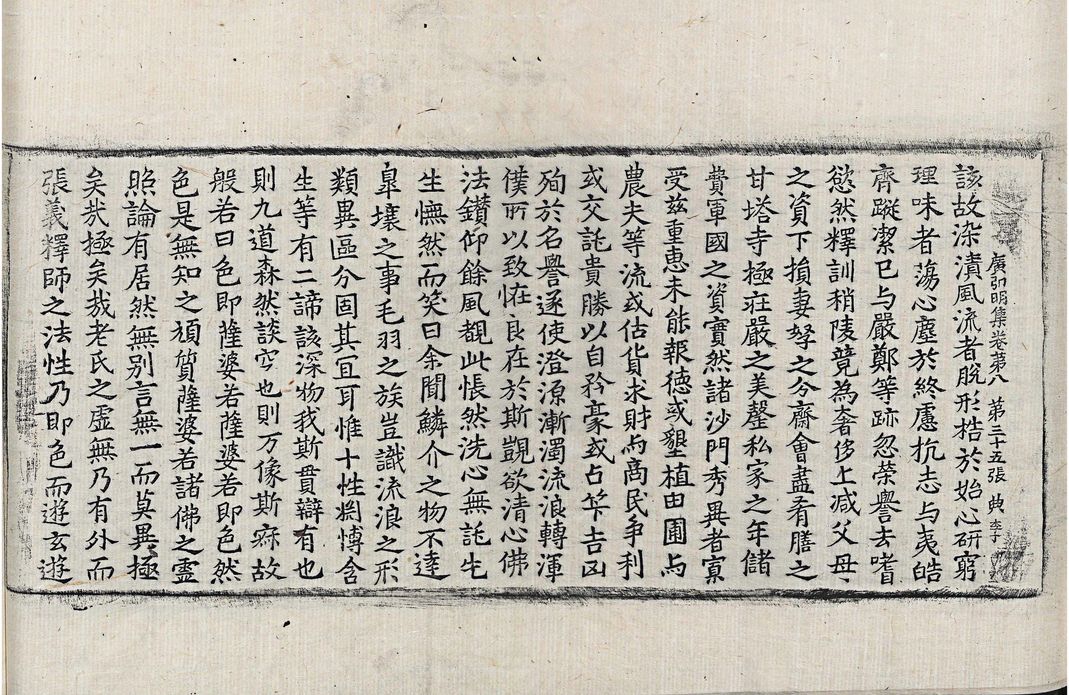 廣弘明集卷第八　第三十五張　典　李子
該故染漬風流者脫形梏於始心研窮
理味者蕩心塵於終慮抗志与夷皓
齊蹤潔已与嚴鄭等跡忽榮譽去嗜
慾然釋訓稍陵競為奢侈上減父母
之資下損妻孥之分齋會盡肴膳之
甘塔寺極莊嚴之美罄私家之年儲
費軍國之資實然諸沙門秀異者寡
受玆重惠未能報德或墾植田圃与
農夫等流或估貨求財与商民爭利
或交託貴勝以自矜豪或占筭吉凶
殉於名譽遂使澄源漸濁流浪轉渾
僕所以致恠良在於斯覬欲清心佛
法鑽仰餘風覩此悵然洗心無託先
生憮然而笑曰余聞鱗介之物不達
皐壤之事毛羽之族豈識流浪之形
類異區分固其宜耳惟十性淵博含
生等有二諦該深物我斯貫辯有也
則九道森然談空也則万像斯寂故
般若曰色即薩婆若薩婆若即色然
色是無知之頑質薩婆若諸佛之靈
照論有居然無別言無一而莫異極
矣㢤極矣㢤老氏之虛無乃有外而
張義釋師之法性乃即色而遊玄遊